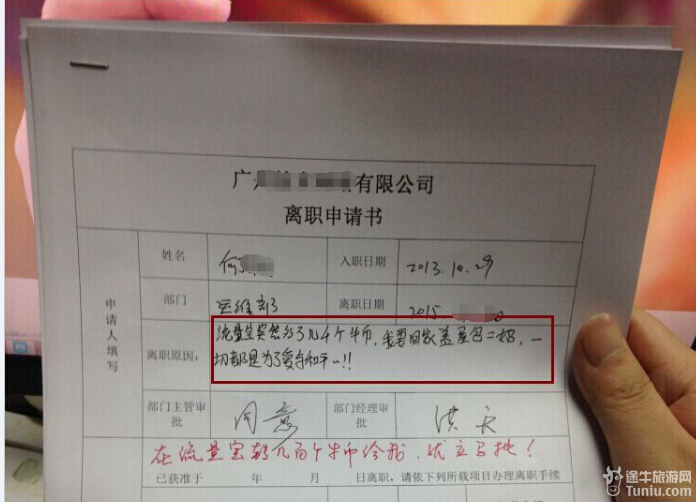 广 有限公司
离职申请书
申请人填写
姓名 何 入职日期 2013.10.29
部门 运维部 离职日期 2015.
离职原因： 流量宝突然 了几千个牛币，我要回家盖屋包二奶，一
切都是为了 和平~!!
部门主管审批 同意 部门经理审批 洪天
在流量宝 几百个牛币给我，优立马批！
已获准于 年 月 日离职，请依下列所载项目办理离职手续
途牛旅游网
Tuniu.com